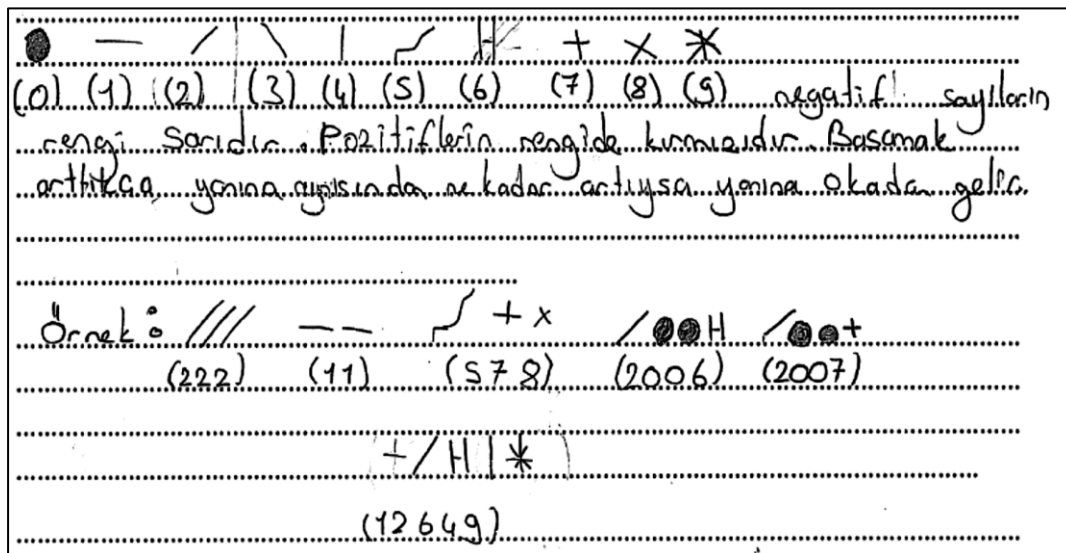 ● — / \ | ⌡ H + × *
(0) (1) (2) (3) (4) (5) (6) (7) (8) (9) negatif sayıların
rengi sarıdır. Pozitiflerin rengide kırmızıdır. Basamak
arttıkça yanına aynısında ne kadar artıysa yanına okadar gelir.
Örnek: /// — — ⌡ + × / ● ● H / ● ● +
(222) (11) (578) (2006) (2007)
+ / H | *
(12649)